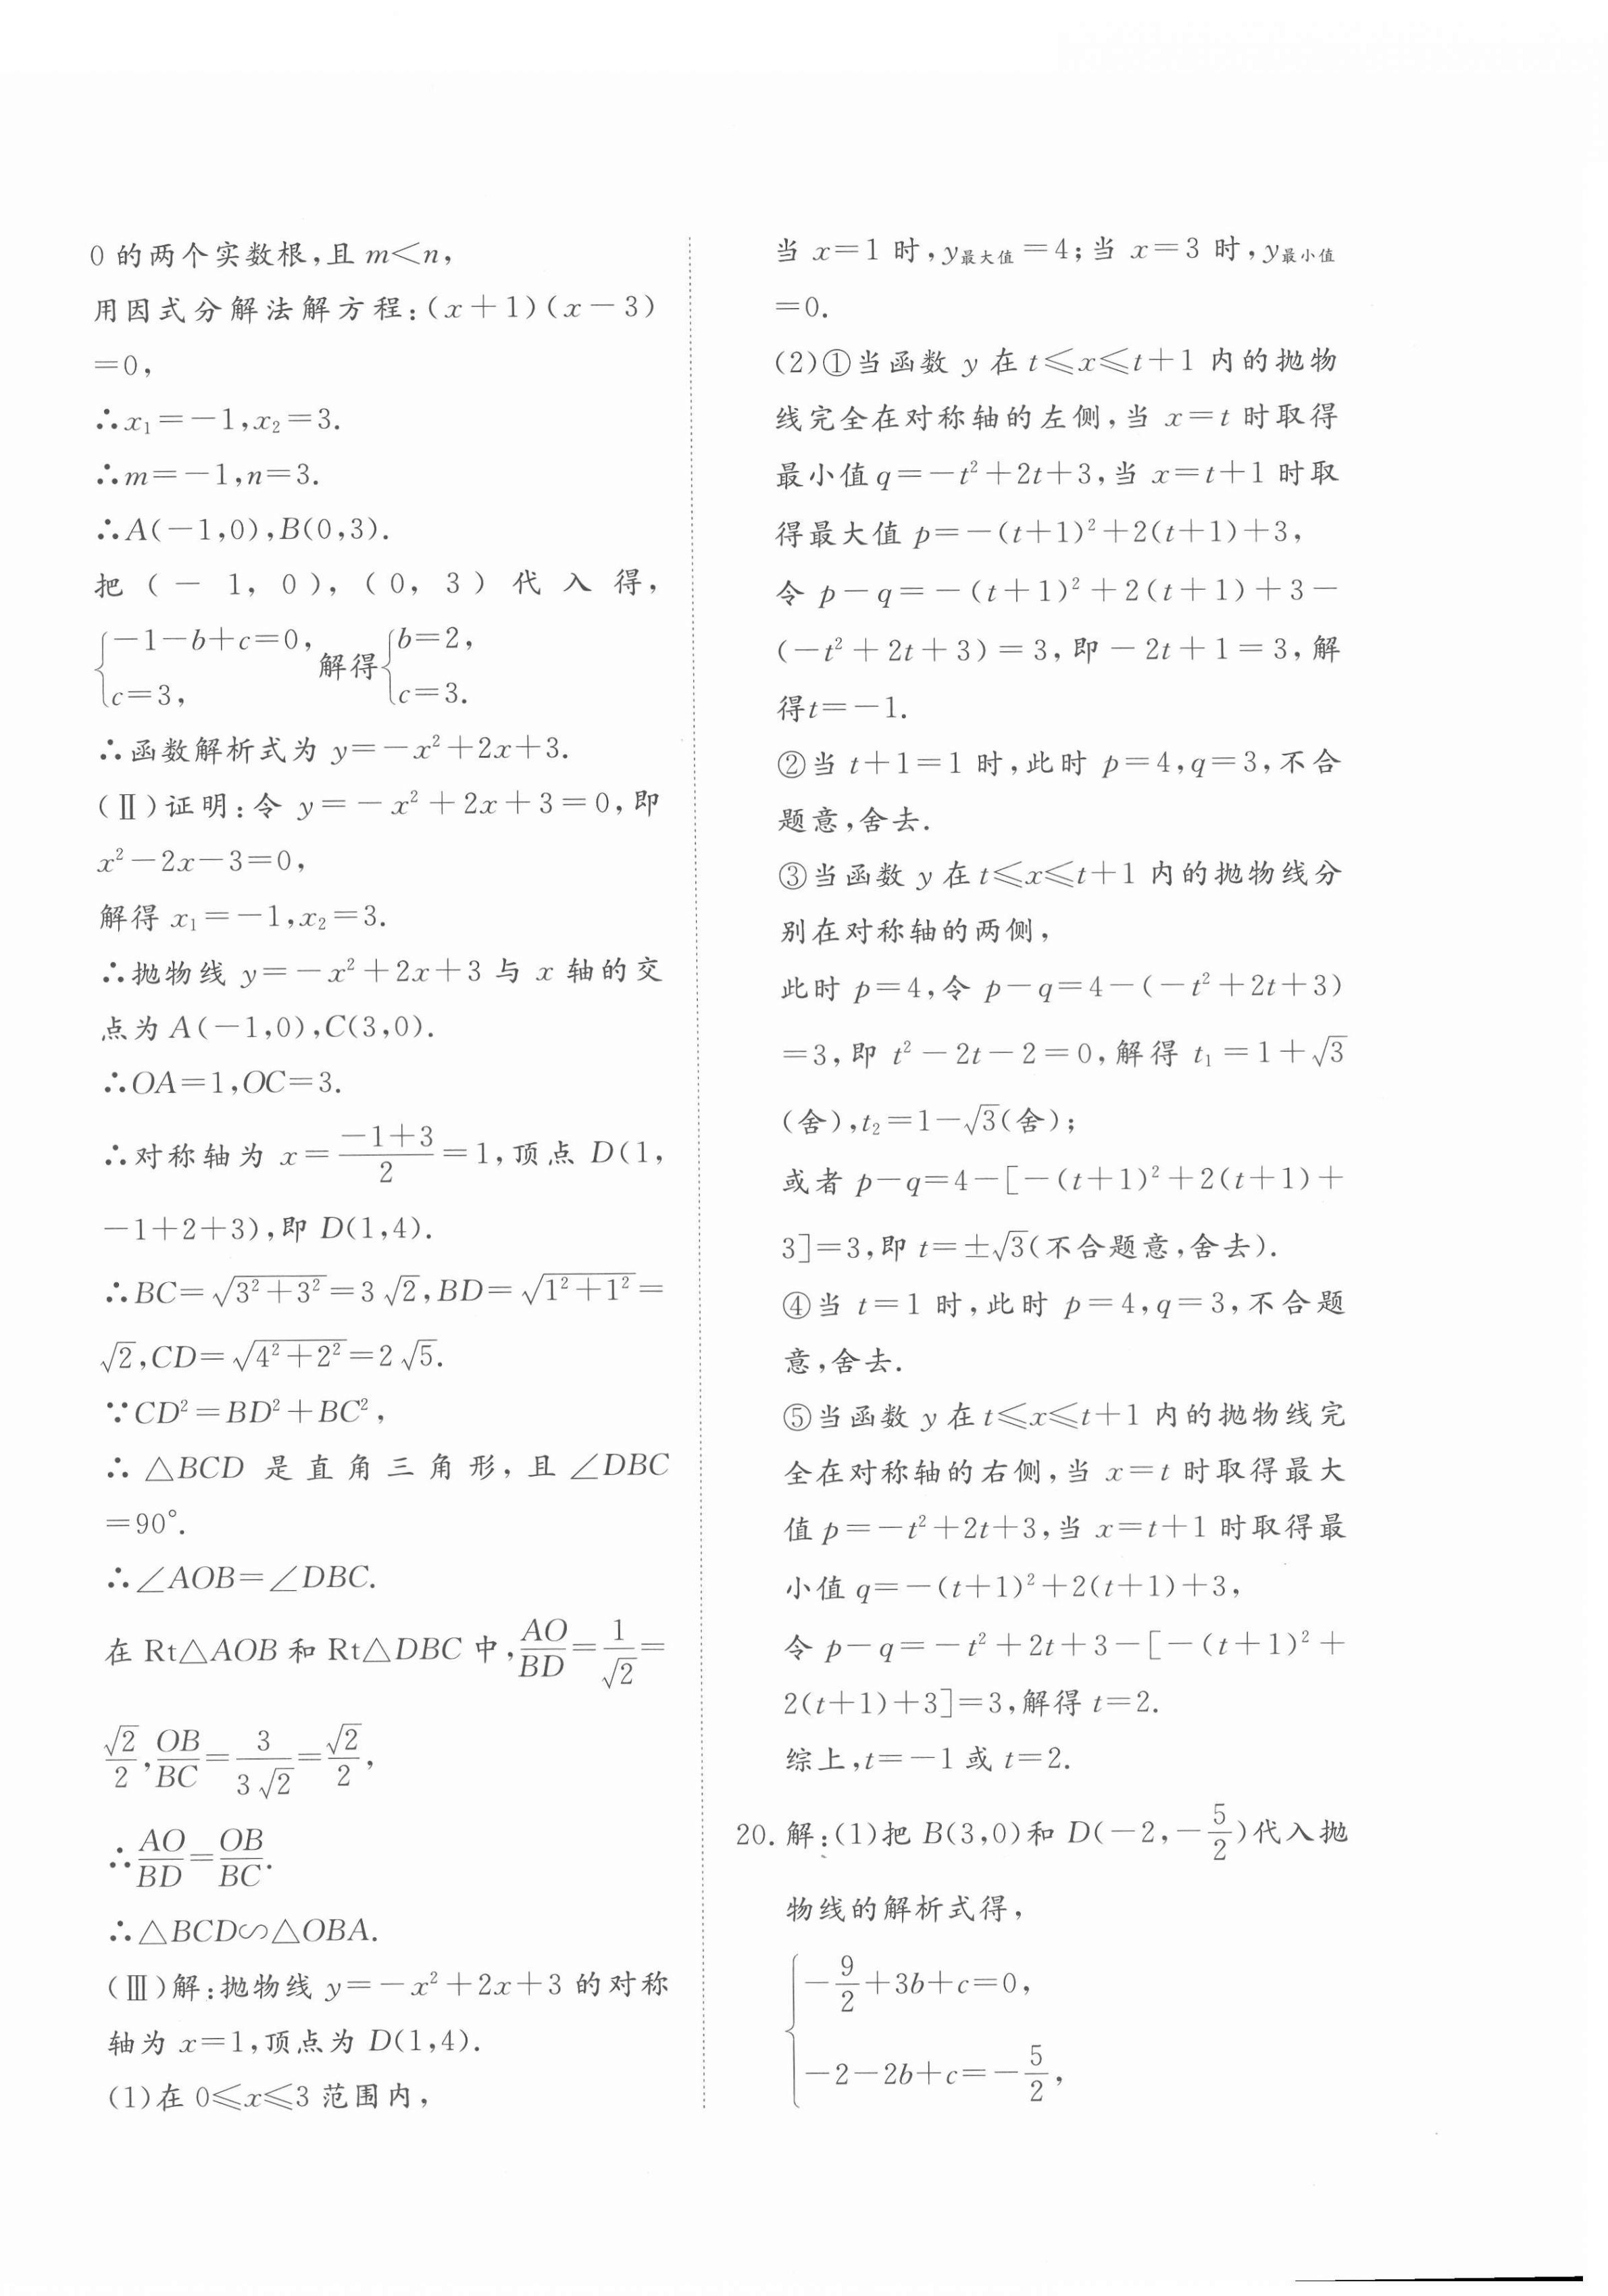 0 的两个实数根,且 m<n,
用因式分解法解方程:(x+1)(x-3)
=0,
∴x₁=-1,x₂=3.
∴m=-1,n=3.
∴A(-1,0),B(0,3).
把(-1,0),(0,3)代入得,
{-1-b+c=0, c=3, 解得{b=2, c=3.
∴函数解析式为 y=-x²+2x+3.
(Ⅱ)证明:令 y=-x²+2x+3=0,即
x²-2x-3=0,
解得 x₁=-1,x₂=3.
∴抛物线 y=-x²+2x+3 与 x 轴的交
点为 A(-1,0),C(3,0).
∴OA=1,OC=3.
∴对称轴为 x=(-1+3)/2=1,顶点 D(1,
-1+2+3),即 D(1,4).
∴BC=√(3²+3²)=3√2,BD=√(1²+1²)=
√2,CD=√(4²+2²)=2√5.
∵CD²=BD²+BC²,
∴△BCD 是直角三角形,且∠DBC
=90°.
∴∠AOB=∠DBC.
在 Rt△AOB 和 Rt△DBC 中,AO/BD=1/√2=
√2/2,OB/BC=3/(3√2)=√2/2,
∴AO/BD=OB/BC.
∴△BCD∽△OBA.
(Ⅲ)解:抛物线 y=-x²+2x+3 的对称
轴为 x=1,顶点为 D(1,4).
(1)在 0≤x≤3 范围内,
当 x=1 时,y最大值=4;当 x=3 时,y最小值
=0.
(2)①当函数 y 在 t≤x≤t+1 内的抛物
线完全在对称轴的左侧,当 x=t 时取得
最小值 q=-t²+2t+3,当 x=t+1 时取
得最大值 p=-(t+1)²+2(t+1)+3,
令 p-q=-(t+1)²+2(t+1)+3-
(-t²+2t+3)=3,即-2t+1=3,解
得t=-1.
②当 t+1=1 时,此时 p=4,q=3,不合
题意,舍去.
③当函数 y 在 t≤x≤t+1 内的抛物线分
别在对称轴的两侧,
此时 p=4,令 p-q=4-(-t²+2t+3)
=3,即 t²-2t-2=0,解得 t₁=1+√3
(舍),t₂=1-√3(舍);
或者 p-q=4-[-(t+1)²+2(t+1)+
3]=3,即 t=±√3(不合题意,舍去).
④当 t=1 时,此时 p=4,q=3,不合题
意,舍去.
⑤当函数 y 在 t≤x≤t+1 内的抛物线完
全在对称轴的右侧,当 x=t 时取得最大
值 p=-t²+2t+3,当 x=t+1 时取得最
小值 q=-(t+1)²+2(t+1)+3,
令 p-q=-t²+2t+3-[-(t+1)²+
2(t+1)+3]=3,解得 t=2.
综上,t=-1 或 t=2.
20. 解:(1)把 B(3,0)和 D(-2,-5/2)代入抛
物线的解析式得,
{-9/2+3b+c=0,
-2-2b+c=-5/2,